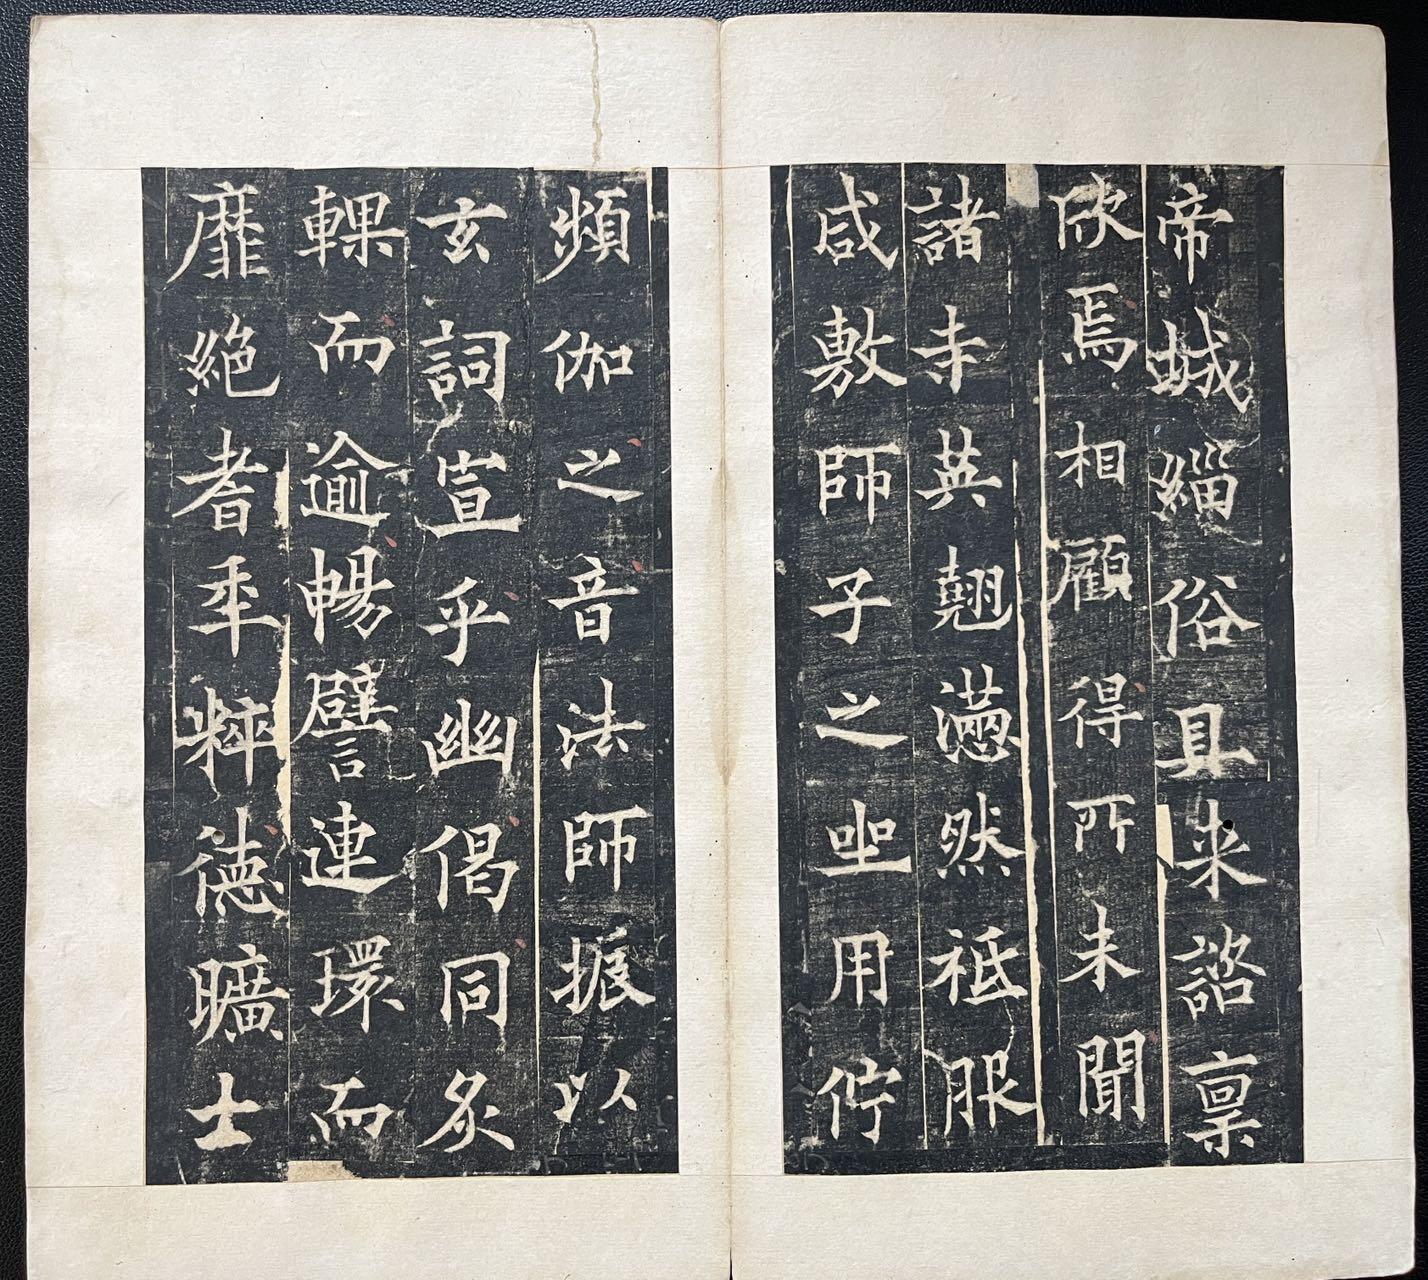 帝城緇俗具来諮稟
欣焉相顧得所未聞
諸寺英翹懣然祗服
咸敷師子之坐用佇
頻伽之音法師振以
玄詞宣乎幽偈同炙
輠而逾暢譬連環而
靡絶耆年粹德曠士